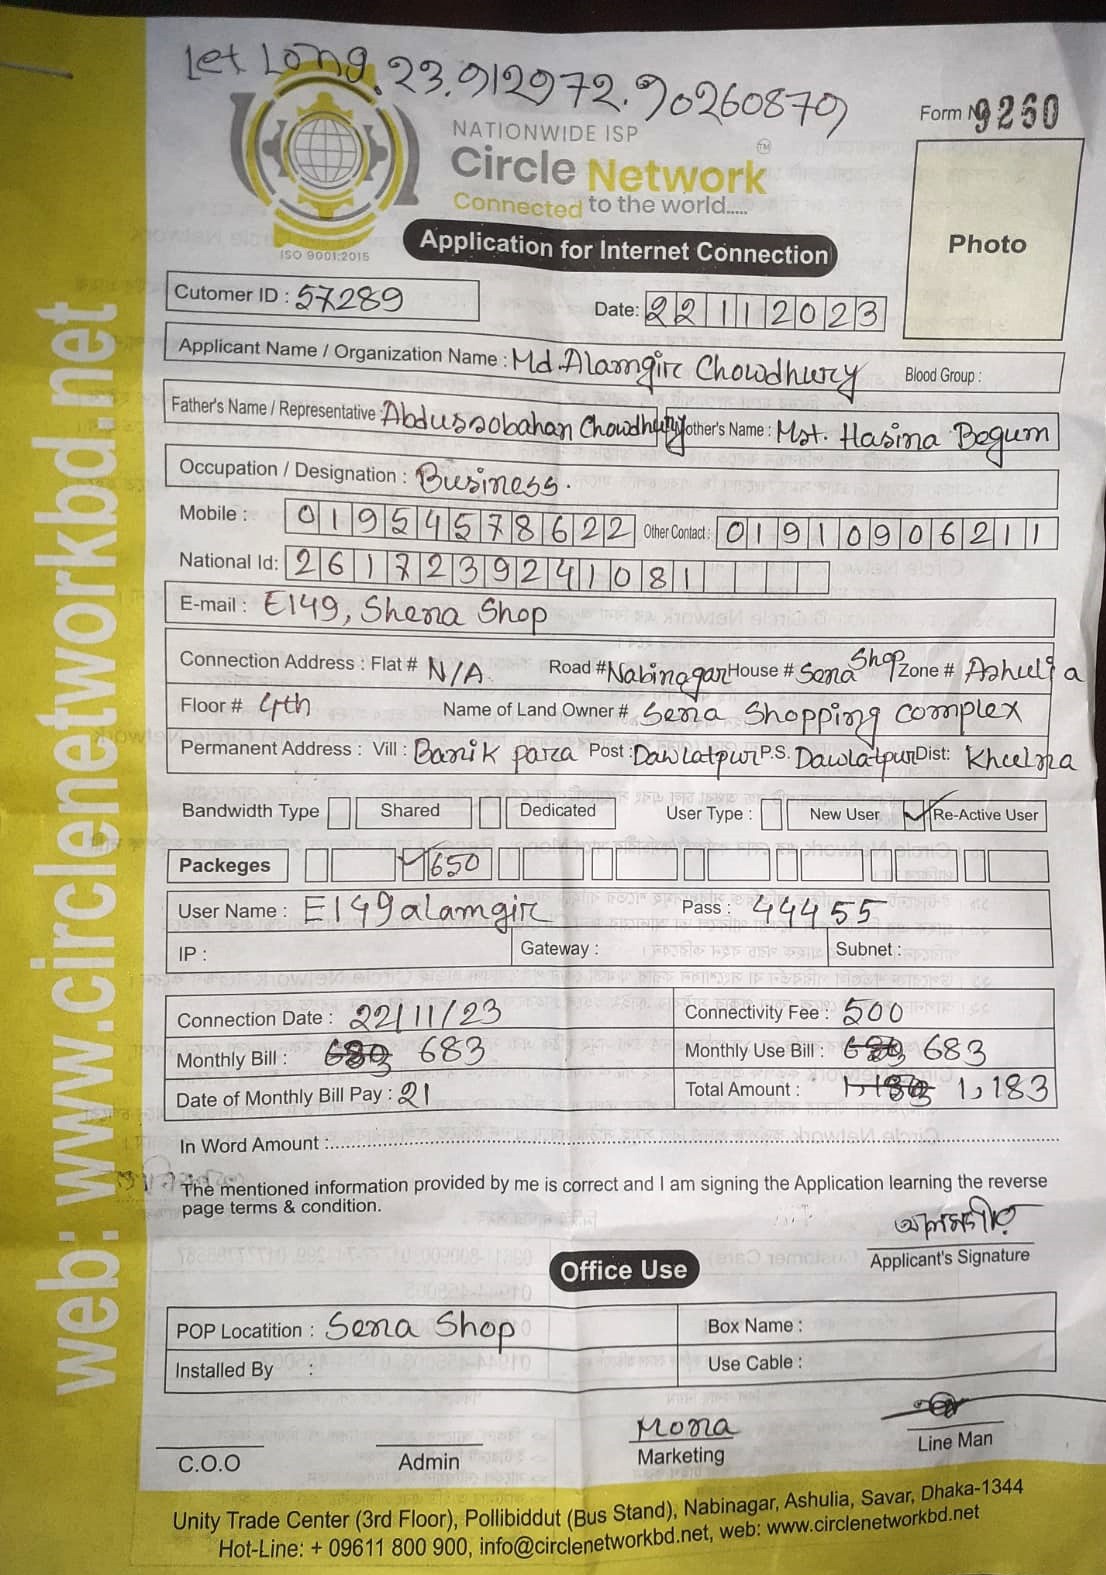 Let Long. 23.912972.90260879
Form N 9260
NATIONWIDE ISP
Circle Network TM
Connected to the world.....
ISO 9001:2015
Application for Internet Connection
Photo
Cutomer ID : 57289
Date: 22 11 2023
Applicant Name / Organization Name : Md. Alamgir Chowdhury Blood Group :
Father's Name / Representative : Abdussobahan Chowdhury other's Name : Mst. Hasina Begum
Occupation / Designation : Business.
Mobile : 01954578622 Other Contact : 01910906211
National Id: 2617239241081
E-mail : E149, Shena Shop
Connection Address : Flat # N/A Road # Nabinagar House # Sena Shop Zone # Ashulia
Floor # 4th Name of Land Owner # Sena Shopping complex
Permanent Address : Vill : Banik para Post : Dawlatpur P.S. Dawlatpur Dist: Khulna
Bandwidth Type Shared Dedicated User Type : New User Re-Active User
Packeges 650
User Name : E149alamgir Pass : 44455
IP : Gateway : Subnet :
Connection Date : 22/11/23 Connectivity Fee : 500
Monthly Bill : 683 Monthly Use Bill : 683
Date of Monthly Bill Pay : 21 Total Amount : 1,183
In Word Amount :
The mentioned information provided by me is correct and I am signing the Application learning the reverse
page terms & condition.
আলমগীর
Applicant's Signature
Office Use
POP Locatition : Sena Shop Box Name :
Installed By : Use Cable :
Mona
C.O.O Admin Marketing Line Man
Unity Trade Center (3rd Floor), Pollibiddut (Bus Stand), Nabinagar, Ashulia, Savar, Dhaka-1344
Hot-Line: + 09611 800 900, info@circlenetworkbd.net, web: www.circlenetworkbd.net
web: www.circlenetworkbd.net